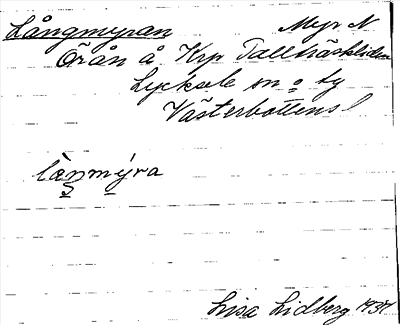 Långmyran Myr N
Örån å Krp Tallträskliden
Lycksele sn o by
Västerbottens l
lànmýra
Lisa Lidberg 1937